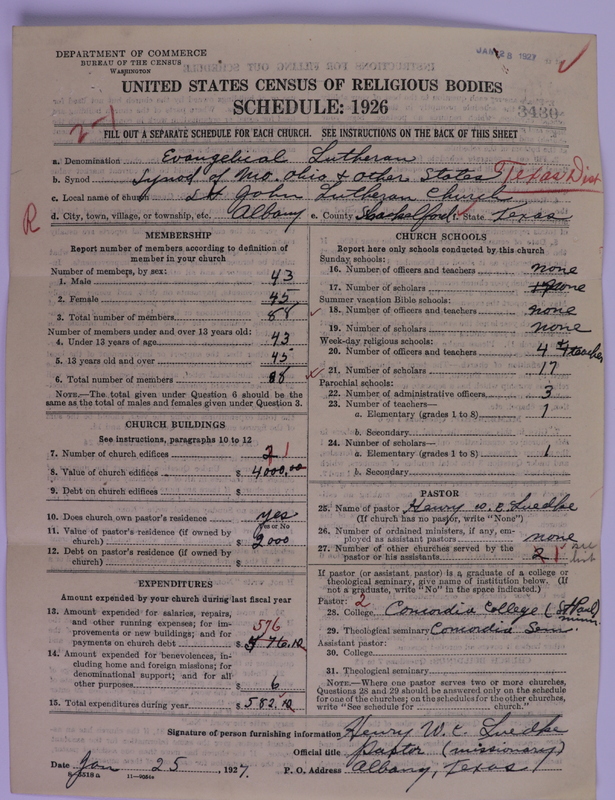 DEPARTMENT OF COMMERCE
BUREAU OF THE CENSUS
WASHINGTON
JAN 28 1927
UNITED STATES CENSUS OF RELIGIOUS BODIES
SCHEDULE: 1926
3430
2-1
FILL OUT A SEPARATE SCHEDULE FOR EACH CHURCH. SEE INSTRUCTIONS ON THE BACK OF THIS SHEET
a. Denomination Evangelical Lutheran
b. Synod Synod of Mo. Ohio & other States Texas Dist
c. Local name of church St. John Lutheran Church
R
d. City, town, village, or township, etc. Albany e. County Shackelford f. State Texas
MEMBERSHIP
Report number of members according to definition of member in your church
Number of members, by sex:
1. Male 43
2. Female 45
3. Total number of members 88
Number of members under and over 13 years old:
4. Under 13 years of age 43
5. 13 years old and over 45
6. Total number of members 88
NOTE.—The total given under Question 6 should be same as the total of males and females given under Question 3.
CHURCH BUILDINGS
See instructions, paragraphs 10 to 12
7. Number of church edifices 2 1
8. Value of church edifices $ 4000.00
9. Debt on church edifices $
10. Does church own pastor's residence yes
Yes or No
11. Value of pastor's residence (if owned by church) $ 2000
12. Debt on pastor's residence (if owned by church) $
EXPENDITURES
Amount expended by your church during last fiscal year
13. Amount expended for salaries, repairs, and other running expenses; for improvements or new buildings; and for payments on church debt $ 576.12
576
14. Amount expended for benevolences, including home and foreign missions; for denominational support; and for all other purposes $ 6
15. Total expenditures during year $ 582.12
CHURCH SCHOOLS
Report here only schools conducted by this church
Sunday schools:
16. Number of officers and teachers none
17. Number of scholars none
Summer vacation Bible schools:
18. Number of officers and teachers none
19. Number of scholars none
Week-day religious schools:
20. Number of officers and teachers 4 teacher
21. Number of scholars 17
Parochial schools:
22. Number of administrative officers 3
23. Number of teachers—
a. Elementary (grades 1 to 8) 1
b. Secondary
24. Number of scholars—
a. Elementary (grades 1 to 8) 1
b. Secondary
PASTOR
25. Name of pastor Henry W. E. Luedke
(If church has no pastor, write "None")
26. Number of ordained ministers, if any, employed as assistant pastors none
27. Number of other churches served by the pastor or his assistants 2 1
If pastor (or assistant pastor) is a graduate of a college or theological seminary, give name of institution below. (If not a graduate, write "No" in the space indicated.)
Pastor: 2
28. College Concordia College (St Paul Minn.
29. Theological seminary Concordia Sem
Assistant pastor:
30. College
31. Theological seminary
NOTE.—Where one pastor serves two or more churches, Questions 28 and 29 should be answered only on the schedule for one of the churches; on the schedules for the other churches, write "See schedule for church."
Signature of person furnishing information Henry W. E. Luedke
Official title Pastor (missionary)
Date Jan 25, 1927. P. O. Address Albany, Texas
11—9364